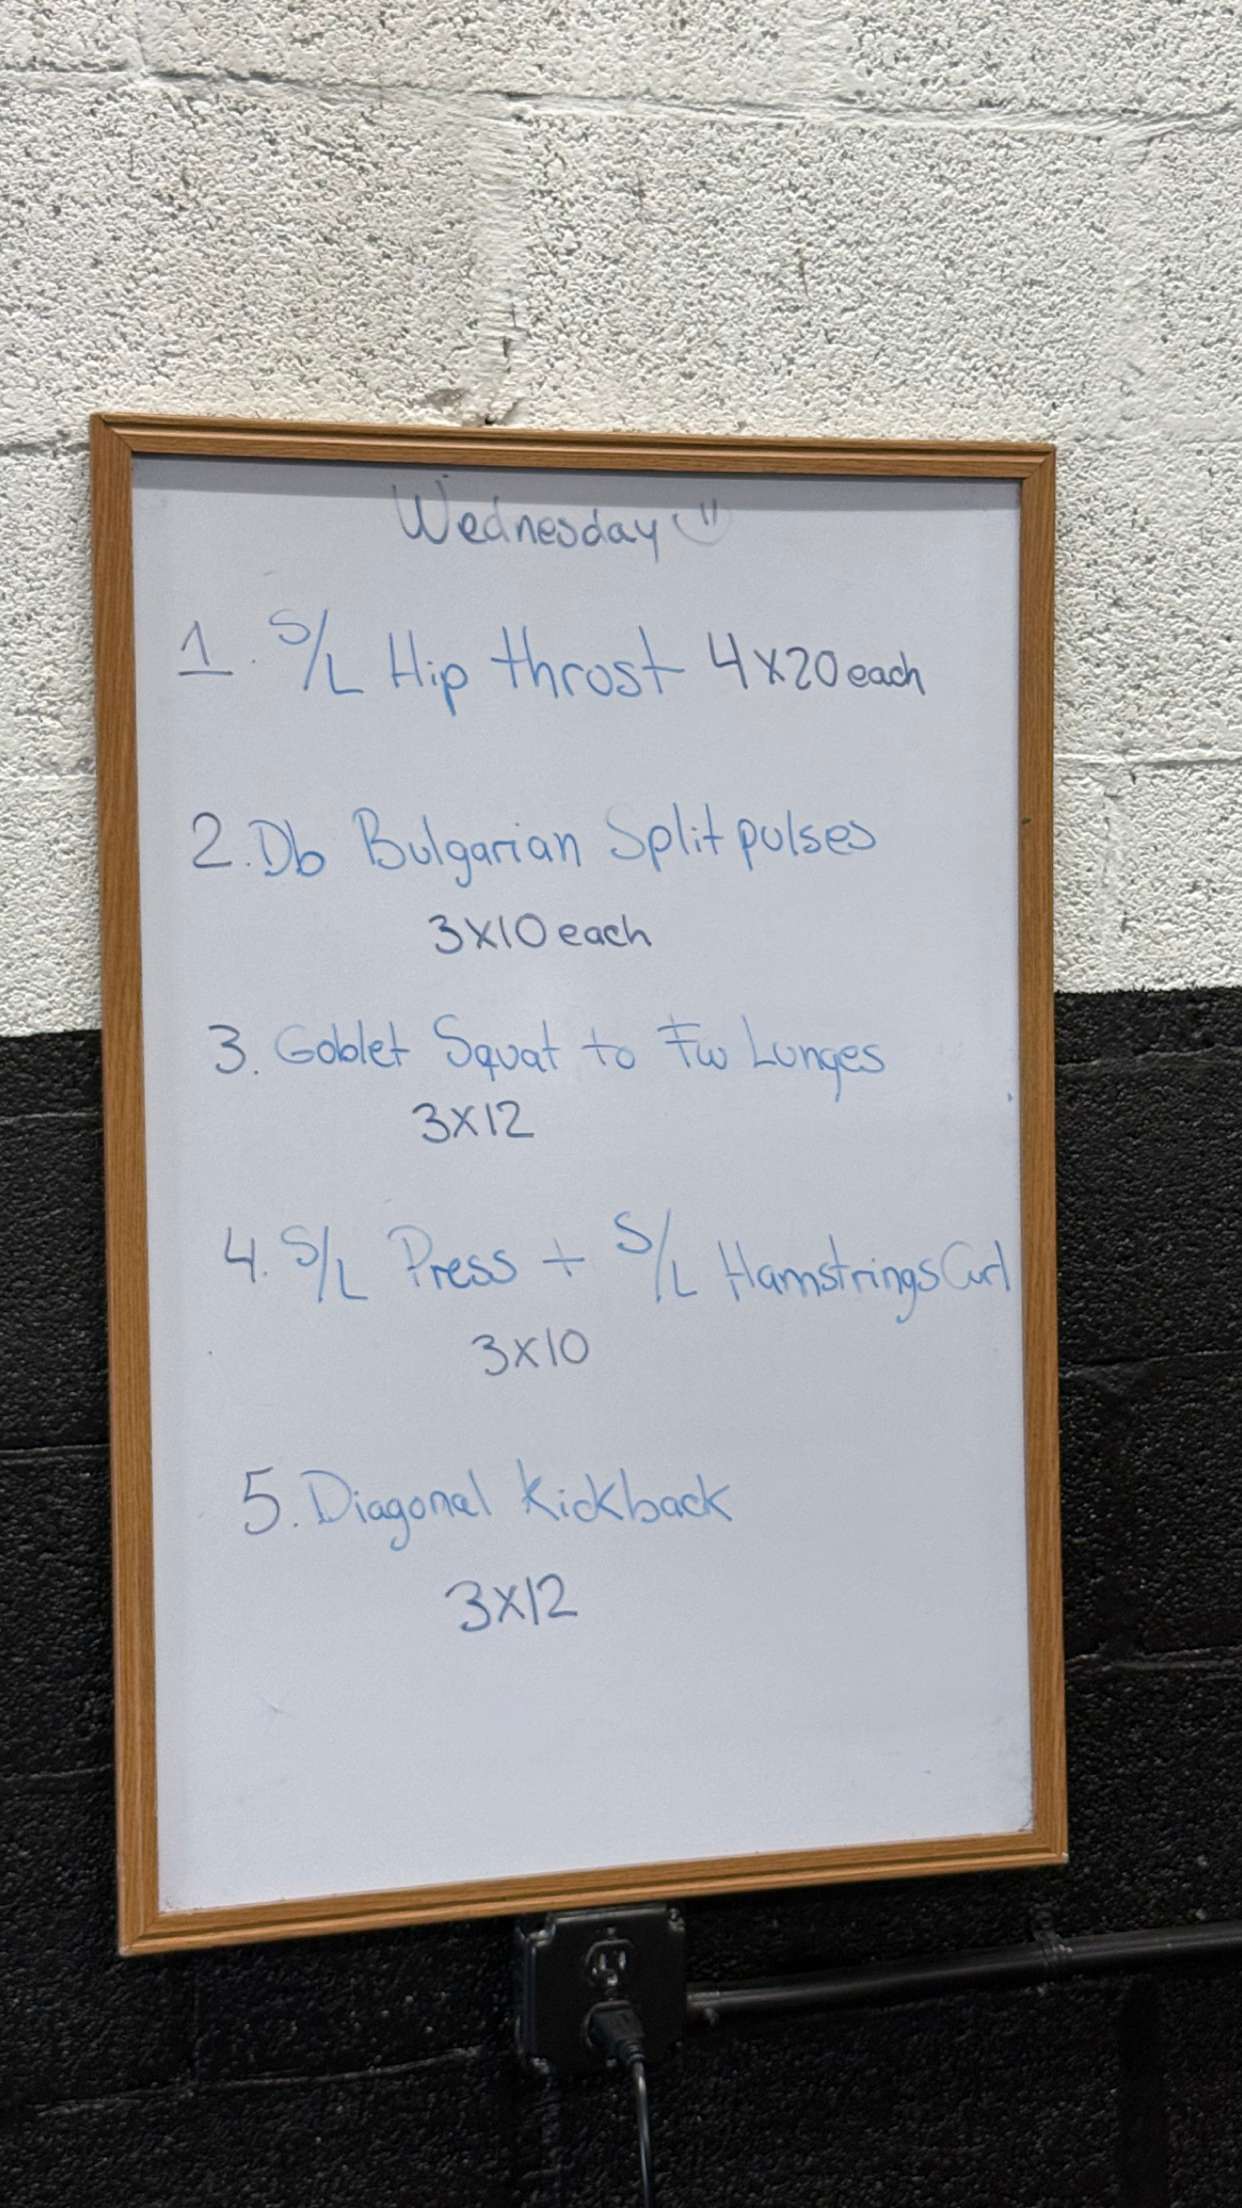 Wednesday
1. S/L Hip thrust 4x20 each
2. Db Bulgarian Split pulses
3x10 each
3. Goblet Squat to Fw Lunges
3x12
4. S/L Press + S/L Hamstrings Curl
3x10
5. Diagonal Kickback
3x12